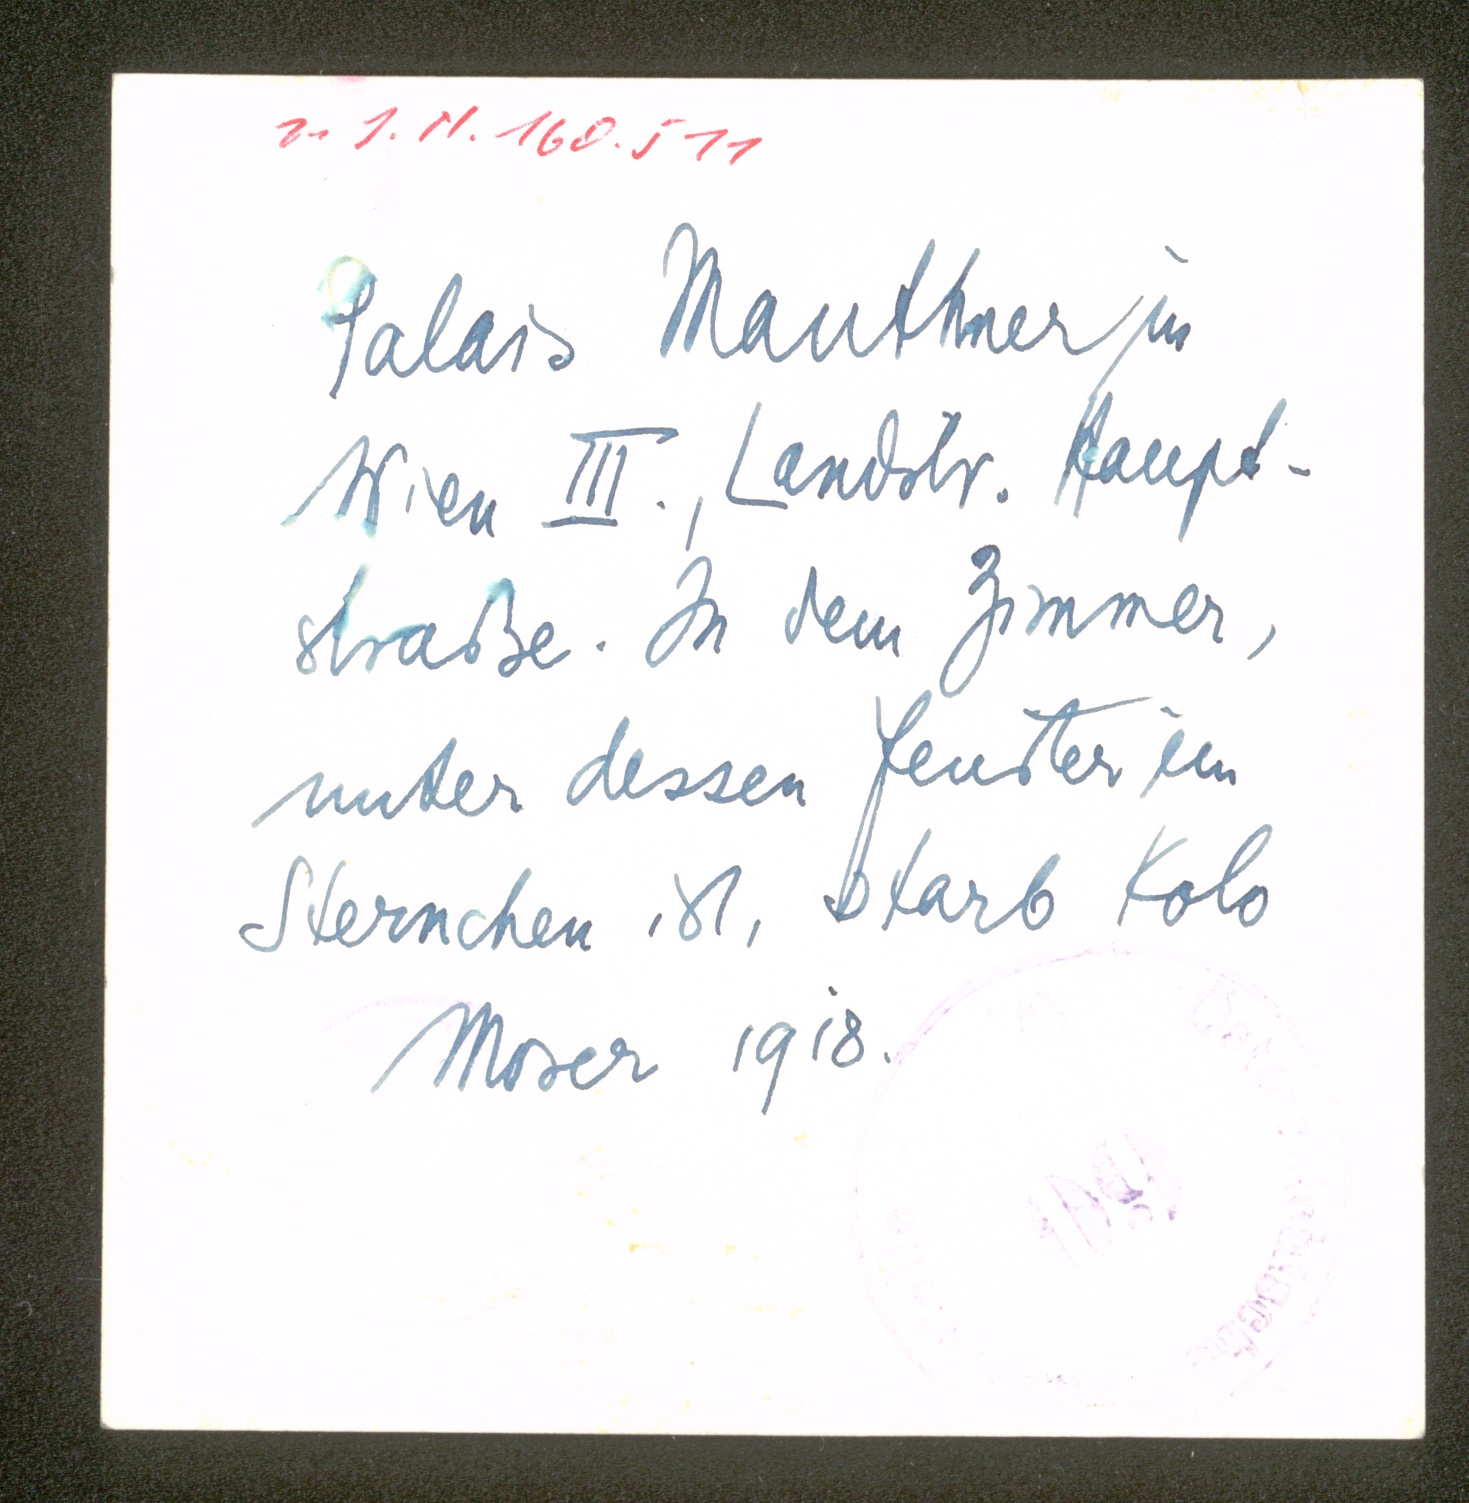 z. I. N. 160.511
Palais Mauthner in
Wien III., Landstr. Haupt-
straße. In dem Zimmer,
unter dessen Fenster ein
Sternchen ist, starb Kolo
Moser 1918.